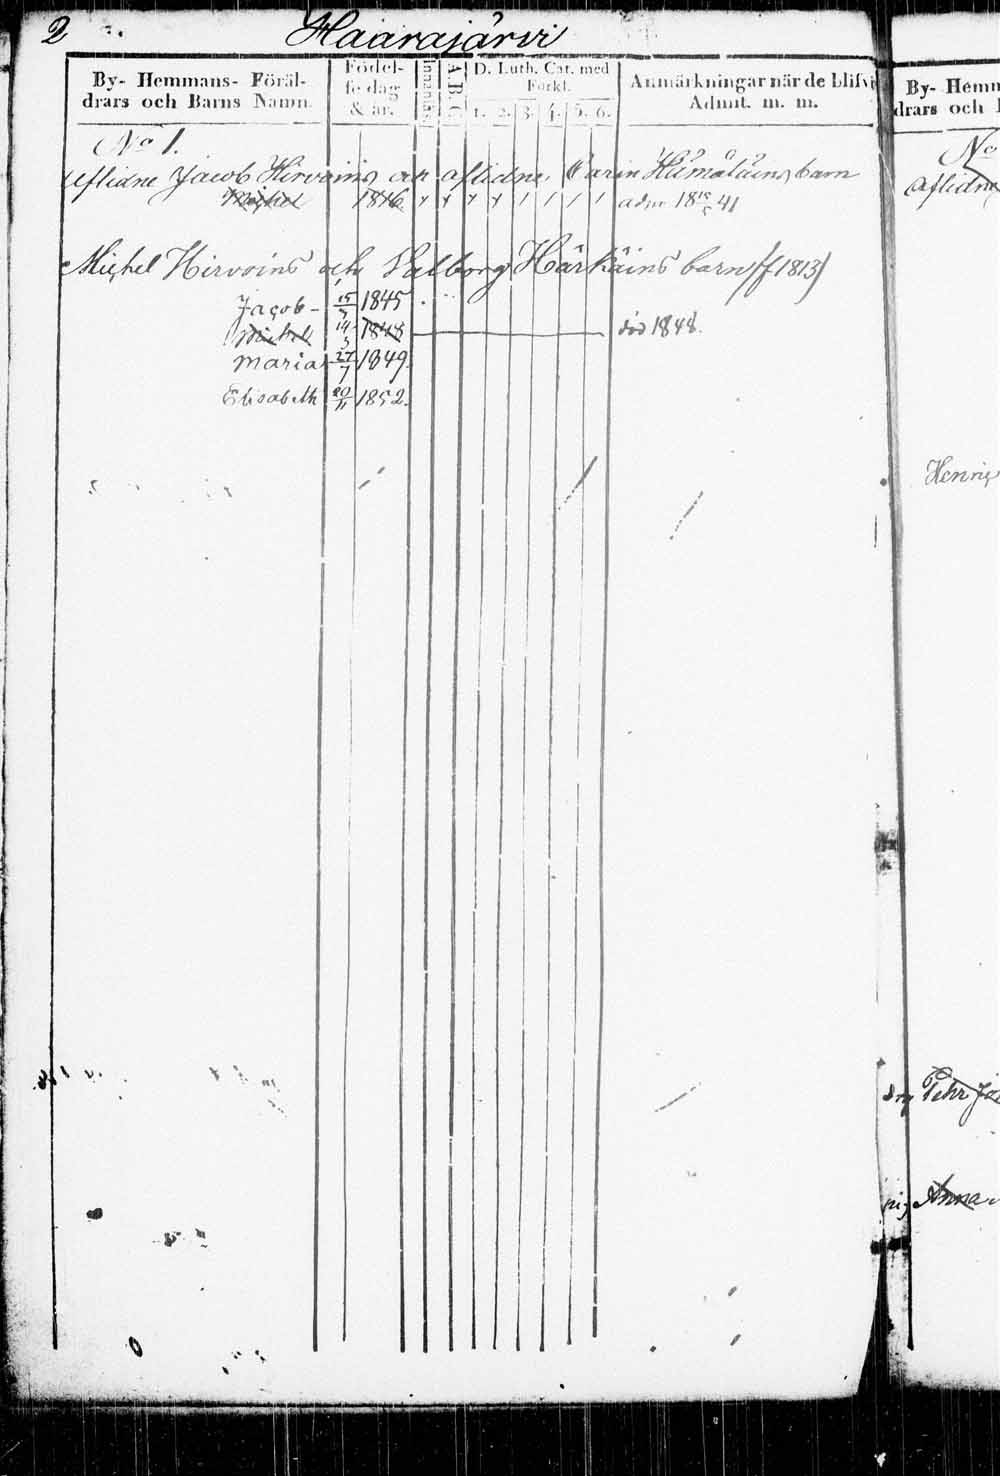 2
Haarajärvi
By- Hemmans- Föräl-
drars och Barns Namn.
Födel-
se dag
& år.
Innanläs.
A.B.C.
D. Luth. Cat. med
Förkl.
1. 2. 3. 4. 5. 6.
Anmärkningar när de blifvi
Admit. m. m.
No 1.
Aflidne Jacob Hirvoins och aflidne Carin Hämäläins barn
Michel 1816 adm 18 41
Michel Hirvoins och Valborg Härkäins barn (f 1813)
Jacob - 15/3 1845
Michel 14/3 1848 död 1848.
Maria 27/7 1849.
Elisabeth 20/11 1852.
By- Hemm
drars och
No
Aflidne
Henric
drg Pehr Ja
pig Anna